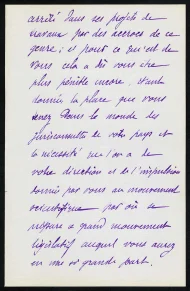 arrêté dans ses projets de
travaux par des accrocs de ce
genre; et pour ce qui est de
vous cela a dû vous être
plus pénible encore, étant
donnée la place que vous
tenez dans le monde des
jurisconsultes de votre pays et
la nécessité qu'on a de
votre direction et de l'impulsion
donnée par vous au mouvement
scientifique par où se
prépare ce grand mouvement
législatif auquel vous aurez
eu une si grande part.